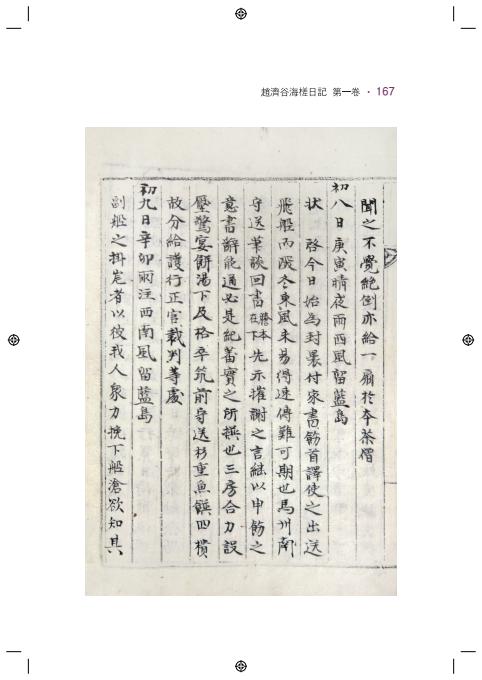 趙濟谷海槎日記 第一卷 · 167
聞之不覺絕倒亦給一扇於本茶僧
初八日庚寅晴夜雨西風留藍島
狀 啓今日始為封裹付家書飭首譯使之出送
飛船而段冬東風未易得速傳難可期也馬州南
守送筆談回書謄本在下先示摧謝之言繼以申飭之
意書辭能通必是紀蕃實之所撰也三房合力設
壓驚宴餠湯下及格卒筑前守送杉重魚饌四樻
故分給護行正官裁判等處
初九日辛卯雨注西南風留藍島
副船之掛岩者以彼我人衆力挽下船滄欲知其